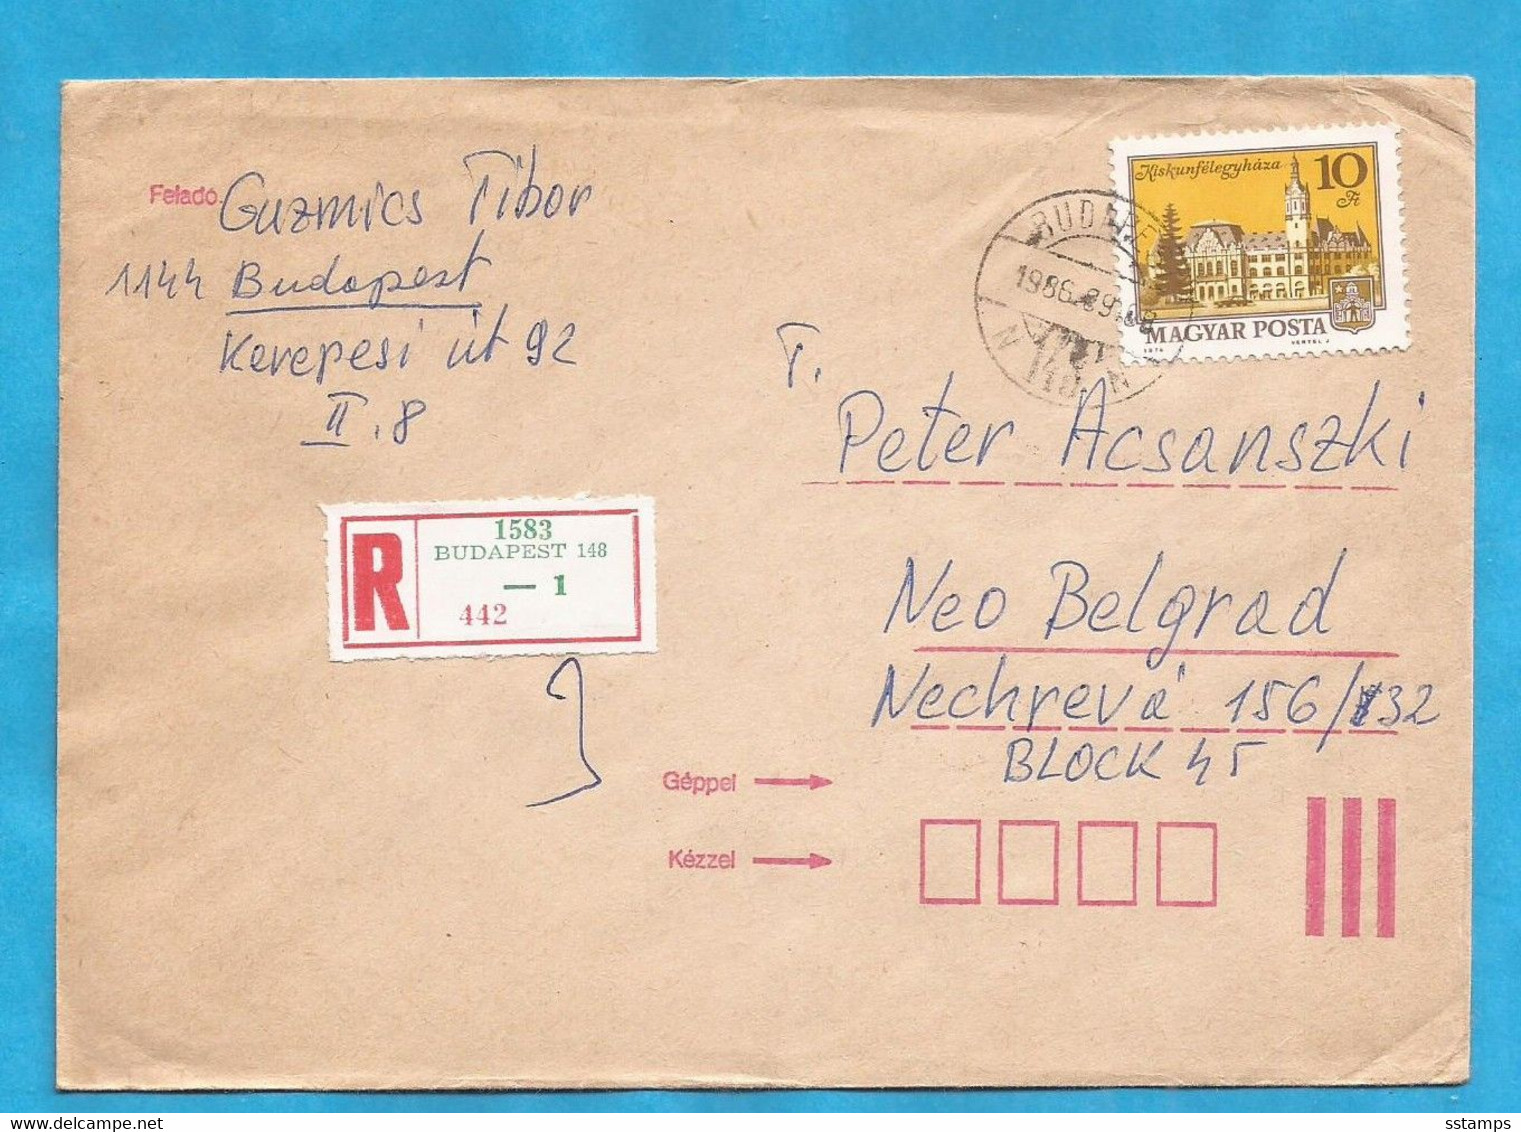 Feladó
Guzmics Tibor
1144 Budapest
Kerepesi út 92
II. 8
Kiskunfélegyháza
10
Ft
MAGYAR POSTA
1974
VERTEL J
1986
148
T.
Peter Acsanszki
R
1583
BUDAPEST 148
— 1
442
Neo Belgrad
Nechrevá 156/32
BLOCK 45
Géppel
Kézzel
sstamps